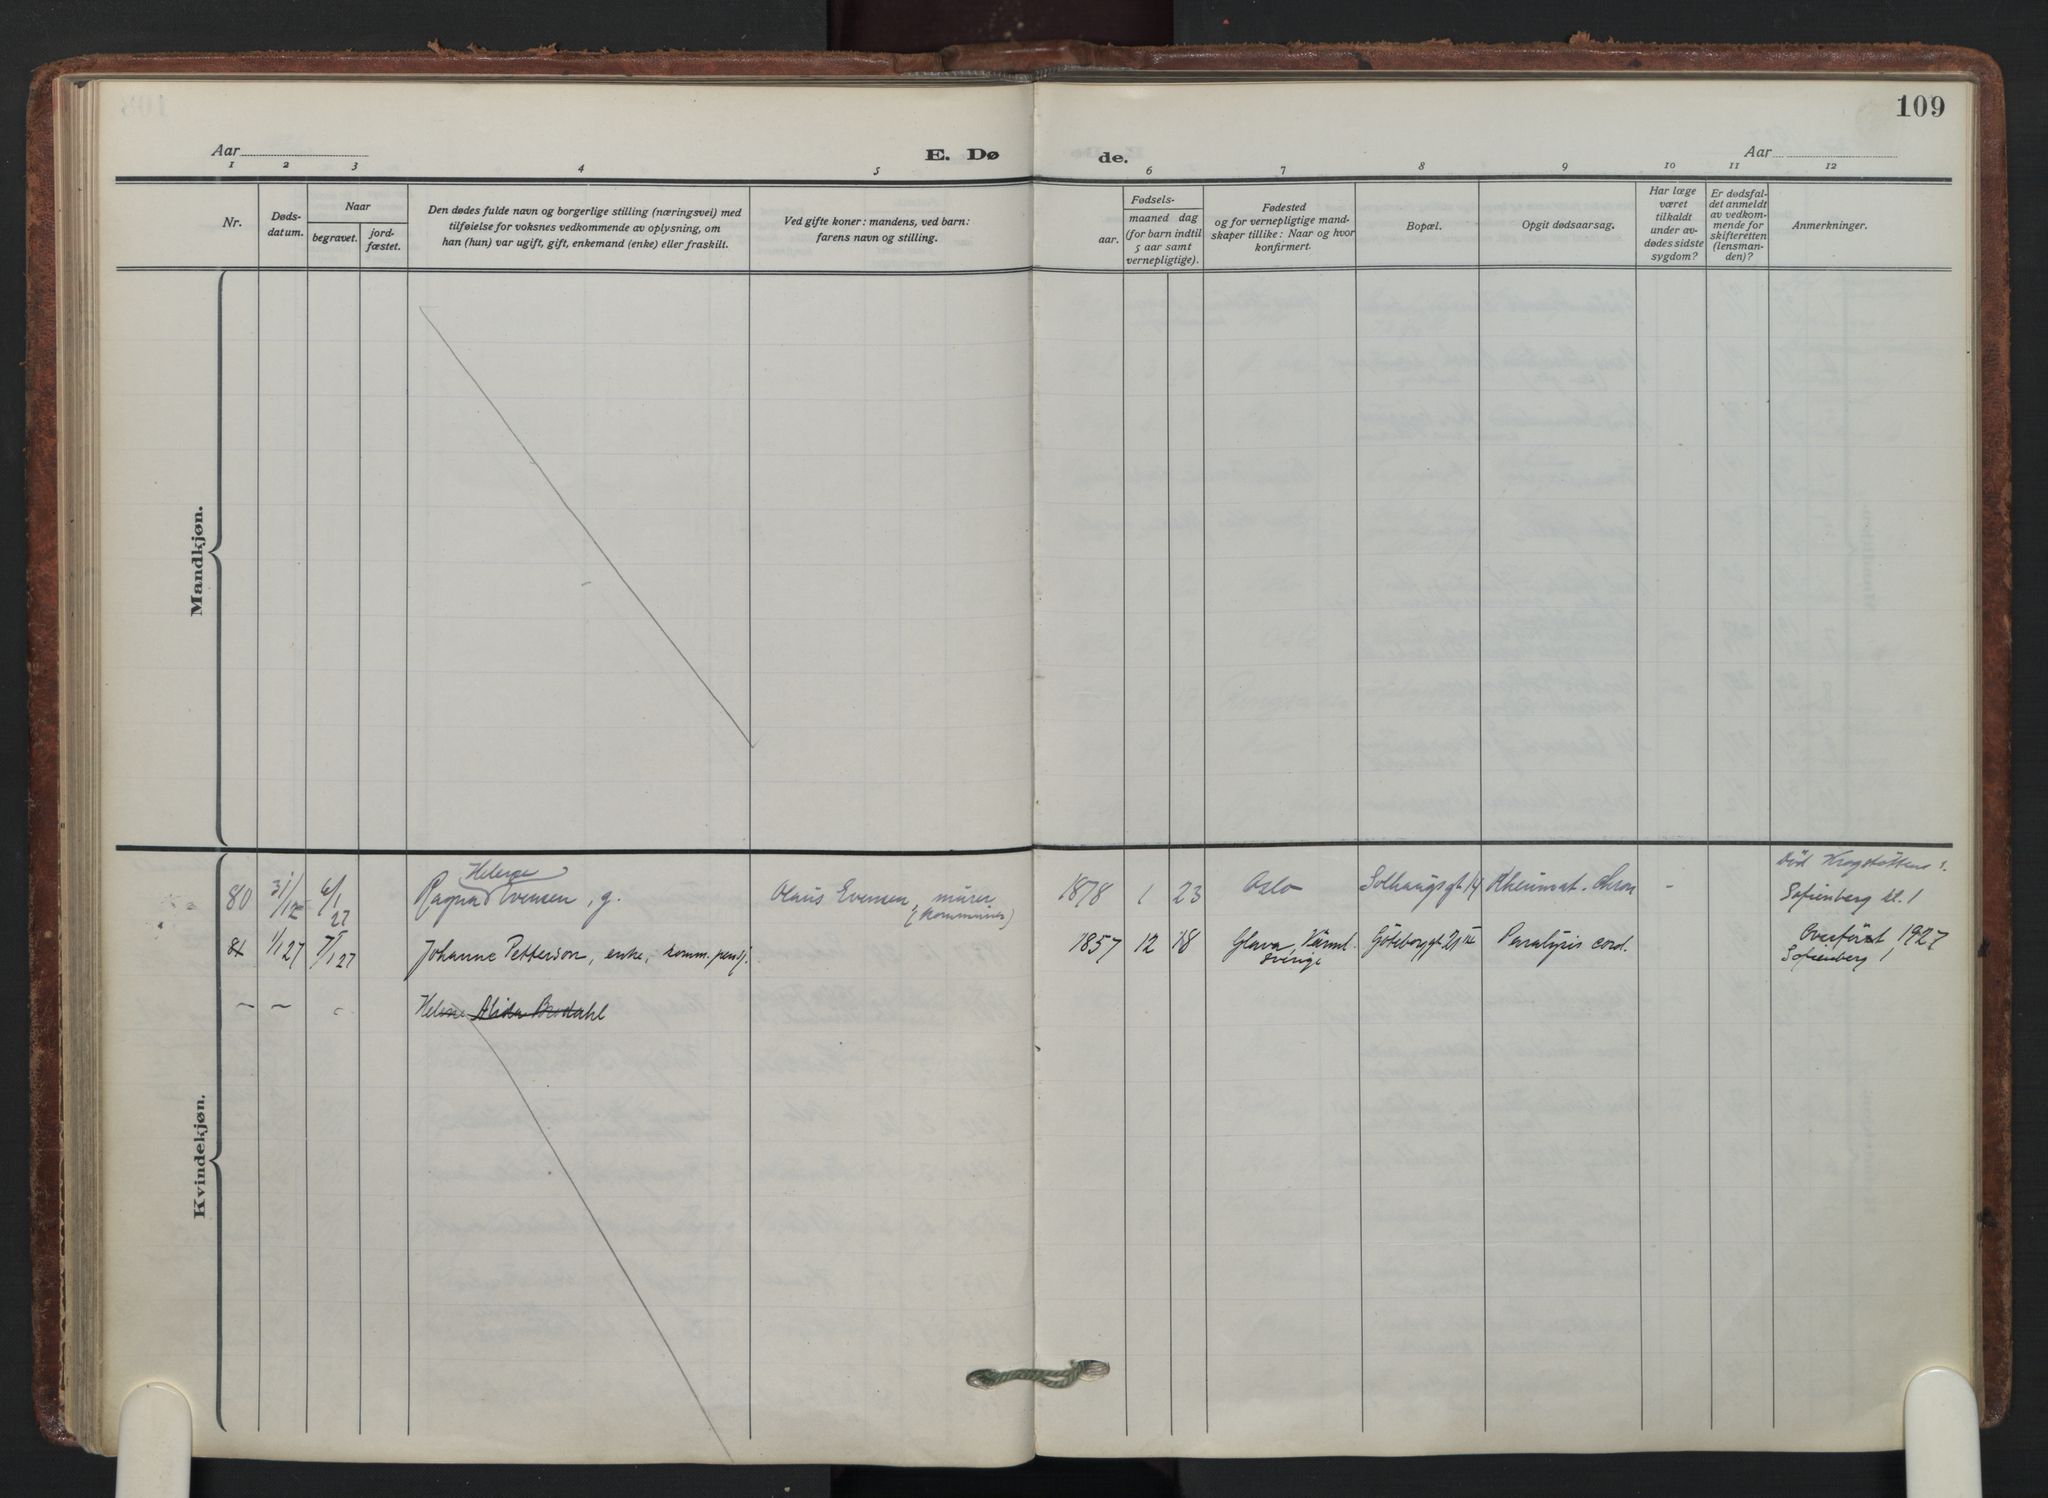 109
Aar
E. Dø
de.
Aar
1 2 3 4 5 6 7 8 9 10 11 12
Nr.
Døds-
datum.
Naar
begravet.
jord-
fæstet.
Den dødes fulde navn og borgerlige stilling (næringsvei) med
tilføielse for voksnes vedkommende av oplysning, om
han (hun) var ugift, gift, enkemand (enke) eller fraskilt.
Ved gifte koner: mandens, ved barn:
farens navn og stilling.
Fødsels-
aar.
maaned dag
(for barn indtil
5 aar samt
vernepligtige).
Fødested
og for vernepligtige mand-
skaper tillike: Naar og hvor
konfirmert.
Bopæl.
Opgit dødsaarsag.
Har læge
været
tilkaldt
under av-
dødes sidste
sygdom?
Er dødsfal-
det anmeldt
av vedkom-
mende for
skifteretten
(lensman-
den)?
Anmerkninger.
Mandkjøn.
Kvindekjøn.
80 31/12 6/1 27 Ragna Helene Evensen, g. Olaus Evensen, murer 1878 1 23 Oslo Solhaugsgt 14 Rheumat. chron - Död Krogstöttens s.
Sofienberg kl. 1
81 1/1 27 7/1 27 Johanne Petterson, enke, komm. pensj. 1857 12 18 Glava, Värml. Göteborggt 21 Paralysis cord. Overført 1927
Sverige
Sofienberg 1
– – – Helene Alida Brodahl